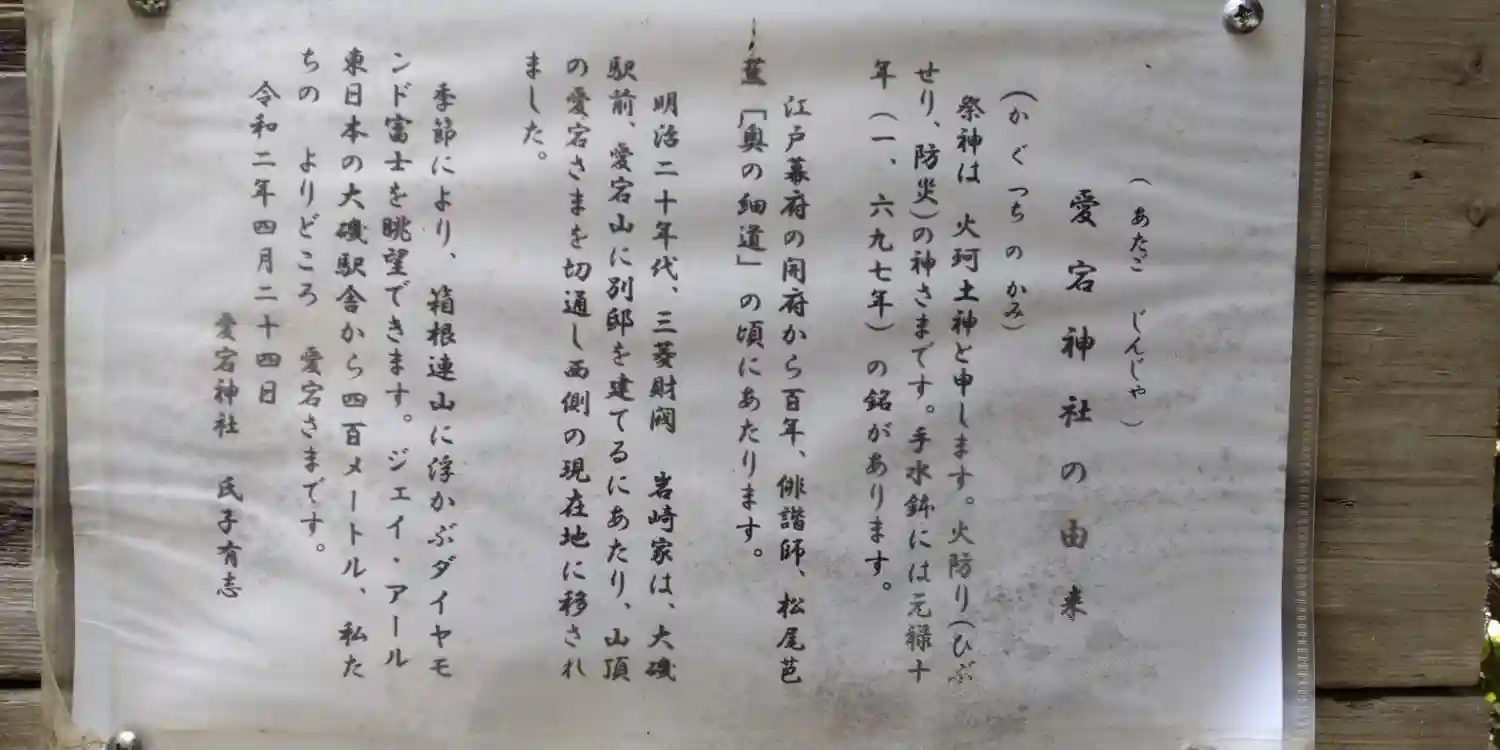 （あたご　じんじゃ）
愛宕神社の由来
（かぐつちのかみ）
祭神は　火珂土神と申します。火防り（ひぶ
せり、防災）の神さまです。手水鉢には元禄十
年（一、六九七年）の銘があります。
江戸幕府の開府から百年、俳諧師、松尾芭
蕉「奥の細道」の頃にあたります。
明治二十年代、三菱財閥　岩崎家は、大磯
駅前、愛宕山に別邸を建てるにあたり、山頂
の愛宕さまを切通し西側の現在地に移され
ました。
季節により、箱根連山に浮かぶダイヤモ
ンド富士を眺望できます。ジェイ・アール
東日本の大磯駅舎から四百メートル、私た
ちの　よりどころ　愛宕さまです。
令和二年四月二十四日
愛宕神社　氏子有志